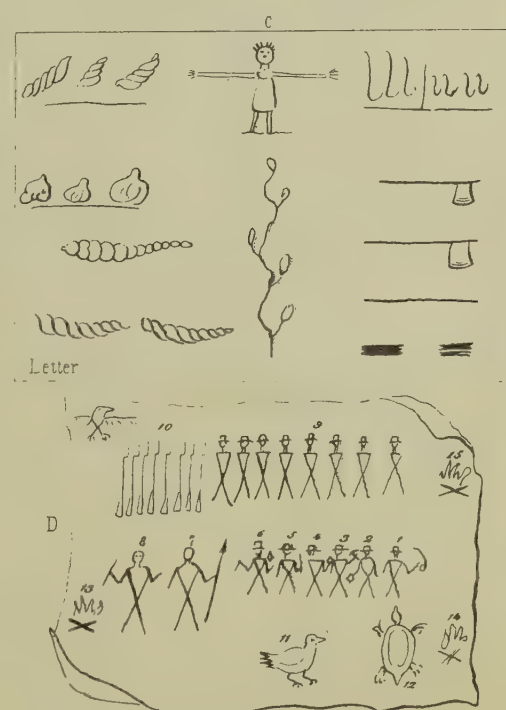 C
Letter
10 9
15
D
8 7 6 5 4 3 2 1
13
11 14
12